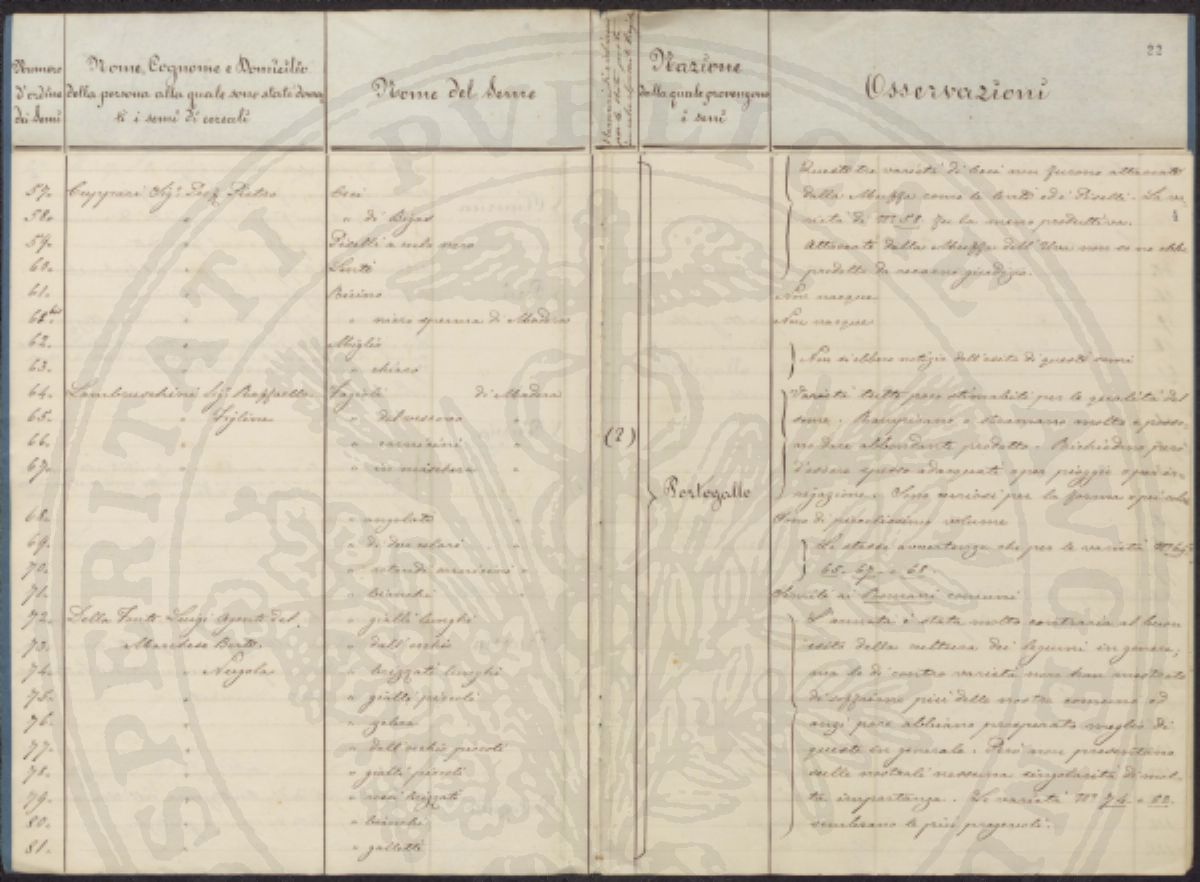 22
Numero d'ordine dei Semi
Nome, Cognome e Domicilio della persona alla quale sono stati donati i semi di cereali
Nome del Seme
Nazione dalla quale provengono i semi
Osservazioni
57. Cuppari Sig. Prof. Pietro Ceci
58. " " di Bijas
59. " Piselli a nelo nero
60. " Lenti
61. " Ricino
61. bis " " nicro sperma di Madera
62. " Miglio
63. " " chiaro
64. Lambruschini Sig. Raffaello Fagioli di Madera
65. " Figline " del vescovo "
66. " " carnicini "
67. " " in mischera "
68. " angolati "
69. " di due colori "
70. " rotondi carnicini "
71. " bianchi "
72. Della Fonte Luigi Agente del " gialli lunghi
73. Marchese Berte " dall'occhio
74. " Nugola " brizzati lunghi
75. " " gialli piccoli
76. " " gelsa
77. " " dall'occhio piccoli
78. " " gialli piccoli
79. " " rossi brizzati
80. " " bianchi
81. " " galletti
(2)
Portogallo
Queste tre varietà di Ceci non furono attaccate
dalla Muffa come le lenti ed i Piselli. La va-
rietà di N.º 58 fu la meno produttiva.
Attaccati dalla Muffa dell'Uva non se ne ebbe
prodotto da recarne giudizio.
Non nacque
Non nacque
Non si ebbero notizie dell'esito di questi semi
Varietà tutte pregi stimabili per le qualità del
seme. Rampicano e stramano molto e posso-
no dare abbondante prodotto. Richiedono però
d'essere spesso adacquati o per pioggie o per ir-
rigazione. Sono curiosi per la forma e pei colori
Sono di piccolissimo volume
Le stesse avvertenze che per le varietà N.º 64
65. 67. e 68
Simili ai Romani comuni
L'annata è stata molto contraria al buon
esito della coltura dei legumi in genere;
ma le di contro varietà non han mostrato
di soffrirne più delle nostre comuni ed
anzi pare abbiano prosperato meglio di
queste in generale. Però non presentano
sulle nostrali nessuna singolarità di mol-
ta importanza. Le varietà N.º 74. e 80.
sembrano le più pregevoli.